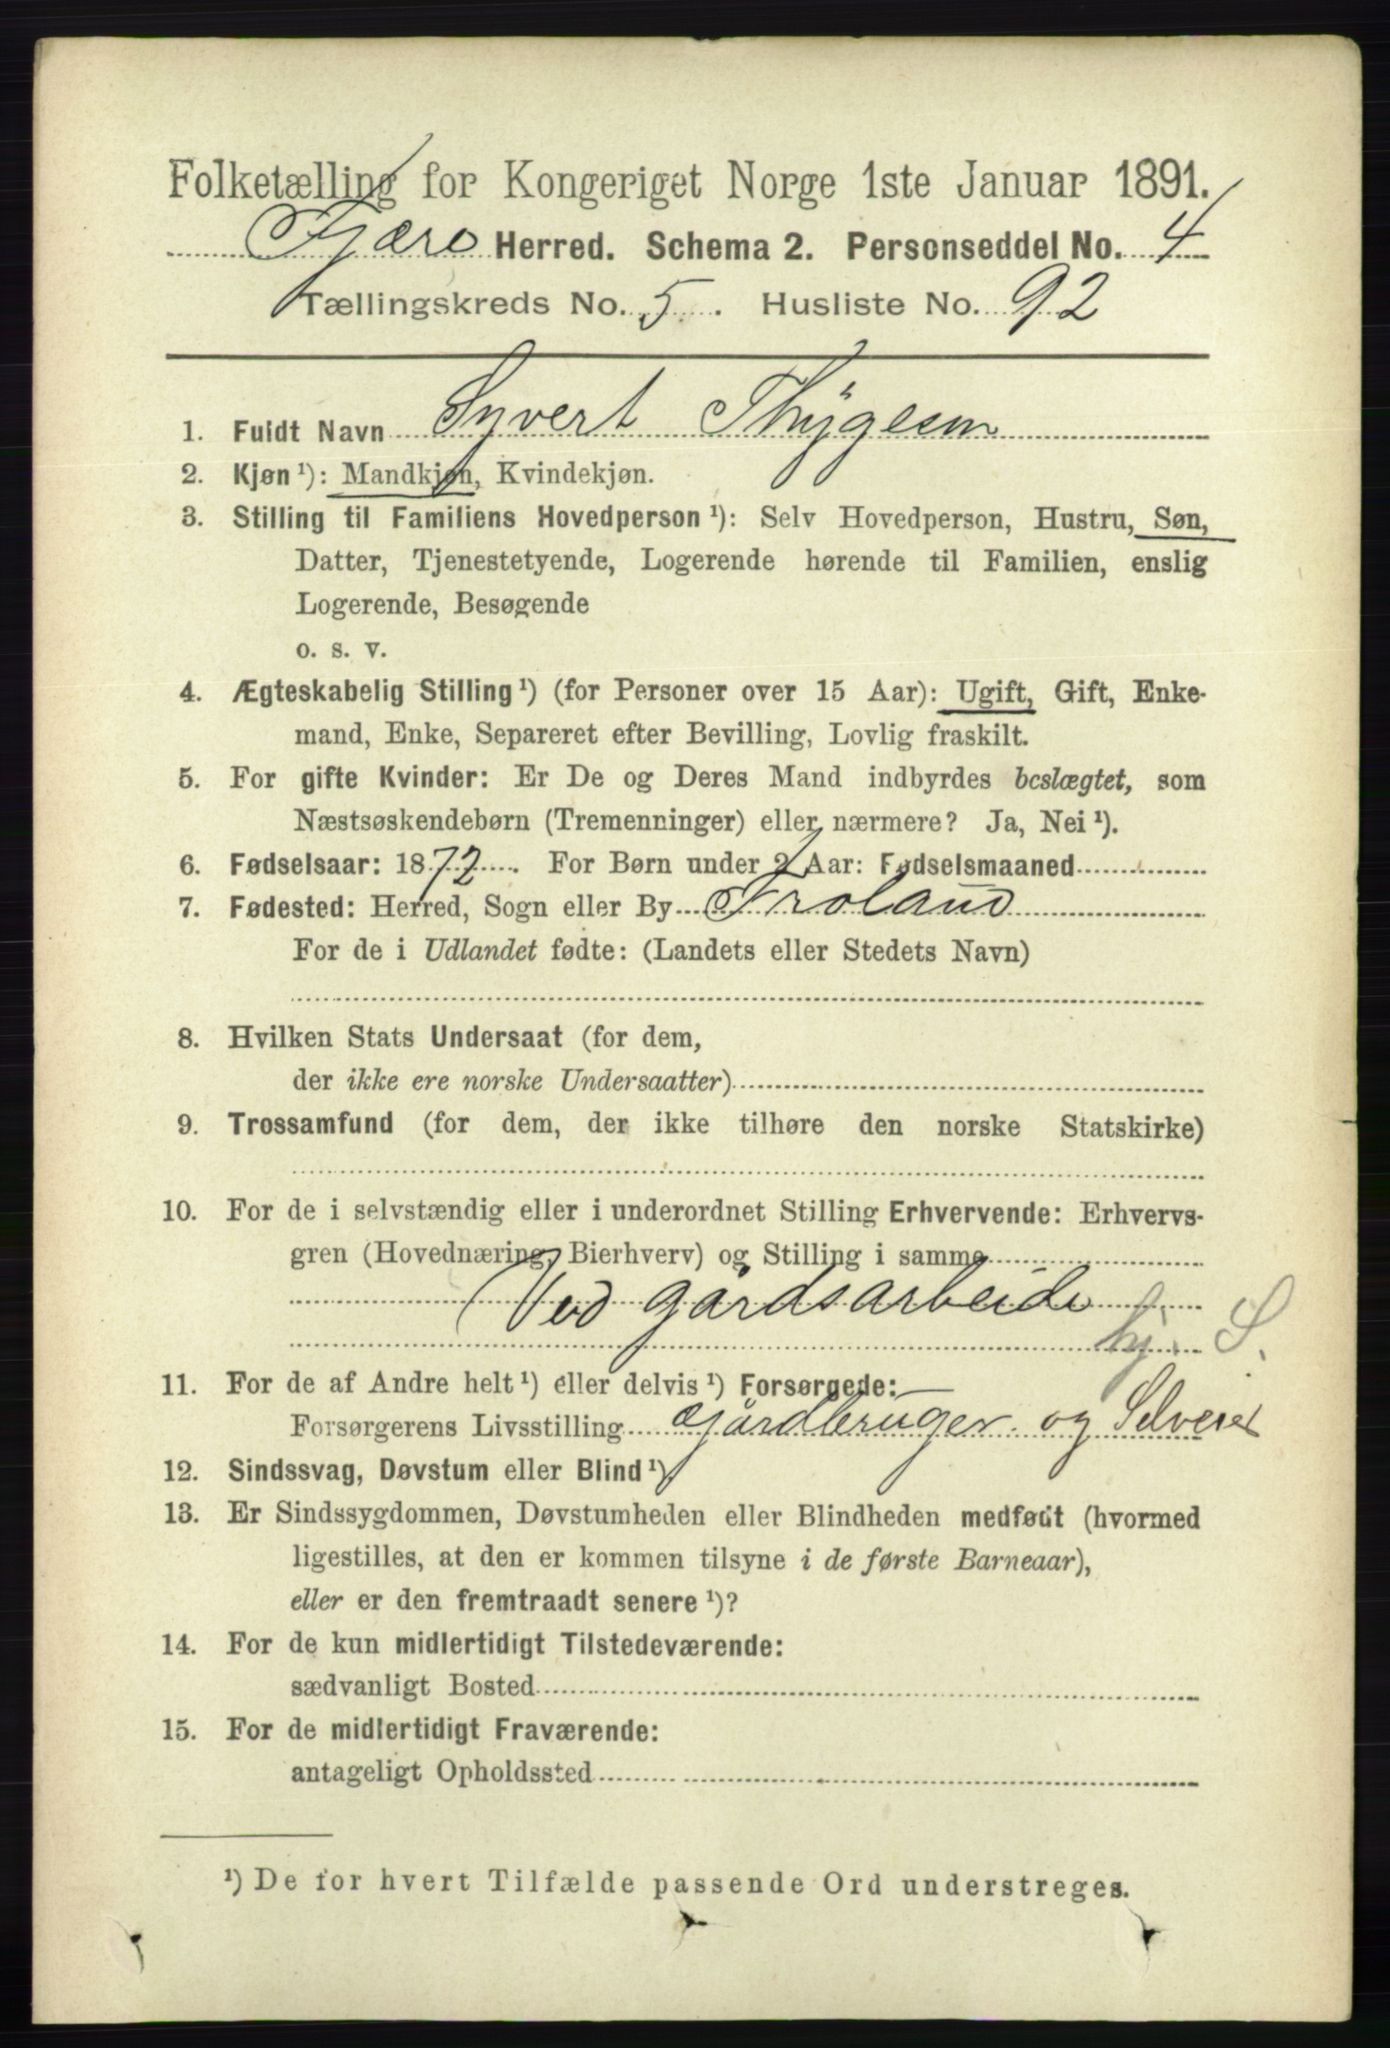 Folketælling for Kongeriget Norge 1ste Januar 1891.
Fjære Herred. Schema 2. Personseddel No. 4
Tællingskreds No. 5. Husliste No. 92
1. Fuldt Navn Syvert Thygesen
2. Kjøn¹): Mandkjøn, Kvindekjøn.
3. Stilling til Familiens Hovedperson¹): Selv Hovedperson, Hustru, Søn,
Datter, Tjenestetyende, Logerende hørende til Familien, enslig
Logerende, Besøgende
o. s. v.
4. Ægteskabelig Stilling¹) (for Personer over 15 Aar): Ugift, Gift, Enke-
mand, Enke, Separeret efter Bevilling, Lovlig fraskilt.
5. For gifte Kvinder: Er De og Deres Mand indbyrdes beslægtet, som
Næstsøskendebørn (Tremenninger) eller nærmere? Ja, Nei¹).
6. Fødselsaar: 1872. For Børn under 2 Aar: Fødselsmaaned
7. Fødested: Herred, Sogn eller By Froland
For de i Udlandet fødte: (Landets eller Stedets Navn)
8. Hvilken Stats Undersaat (for dem,
der ikke ere norske Undersaatter)
9. Trossamfund (for dem, der ikke tilhøre den norske Statskirke)
10. For de i selvstændig eller i underordnet Stilling Erhvervende: Erhvervs-
gren (Hovednæring, Bierhverv) og Stilling i samme
Ved gårdsarbeide
hj. S.
11. For de af Andre helt¹) eller delvis¹) Forsørgede:
Forsørgerens Livsstilling Gårdbruger og Selveier
12. Sindssvag, Døvstum eller Blind¹).
13. Er Sindssygdommen, Døvstumheden eller Blindheden medfødt (hvormed
ligestilles, at den er kommen tilsyne i de første Barneaar),
eller er den fremtraadt senere¹)?
14. For de kun midlertidigt Tilstedeværende:
sædvanligt Bosted
15. For de midlertidigt Fraværende:
antageligt Opholdssted
¹) De for hvert Tilfælde passende Ord understreges.